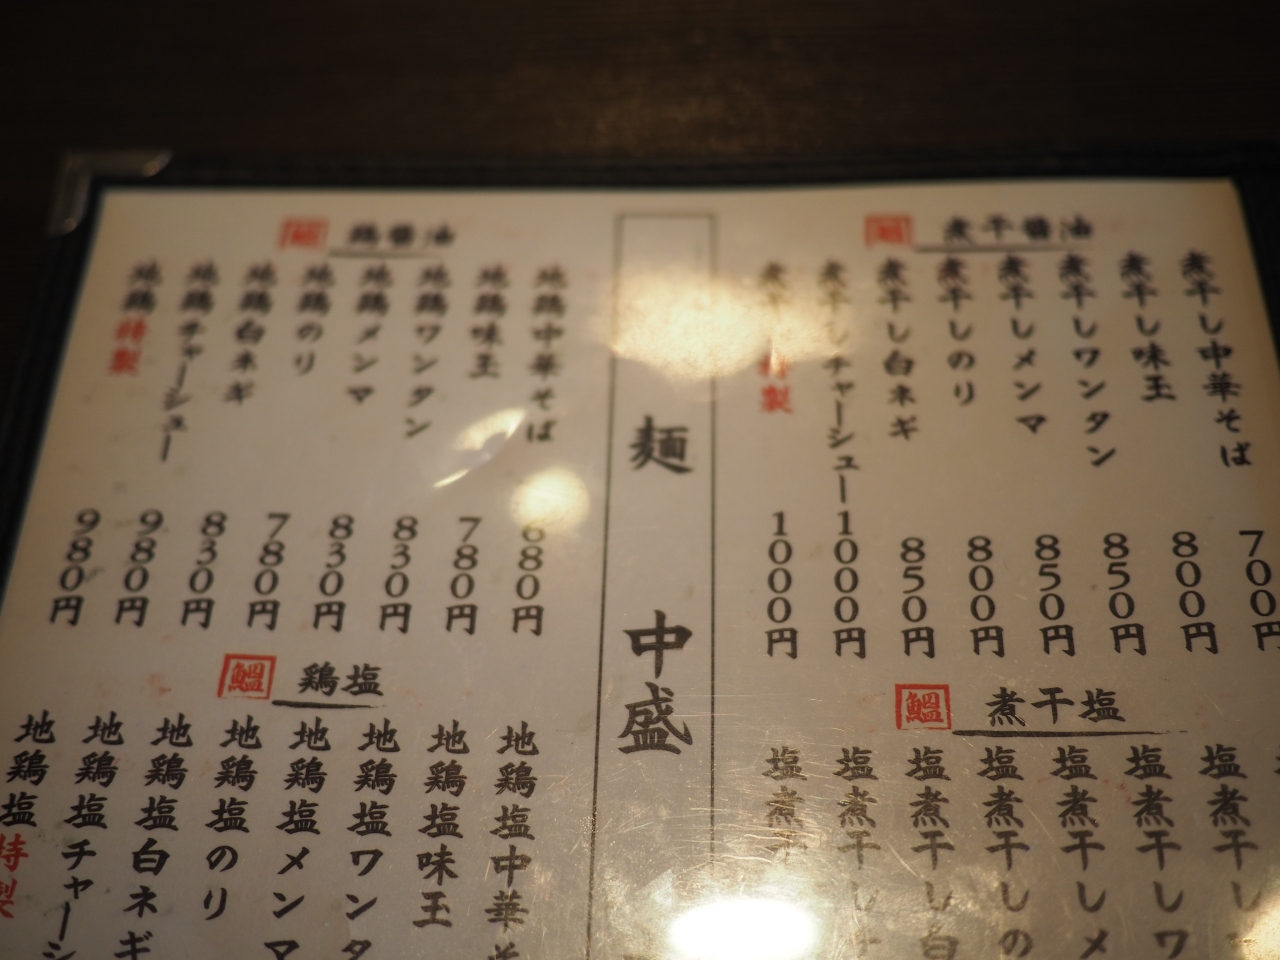 煮干醤油
煮干し中華そば 700円
煮干し味玉 800円
煮干しワンタン 850円
煮干しメンマ 850円
煮干しのり 800円
煮干し白ネギ 850円
煮干しチャーシュー 1000円
煮干し特製 1000円
煮干塩
塩煮干し
塩煮干しワ
塩煮干しメ
塩煮干しの
塩煮干し白
塩煮干しチ
塩煮干
麺 中盛
鶏醤油
地鶏中華そば 680円
地鶏味玉 780円
地鶏ワンタン 830円
地鶏メンマ 830円
地鶏のり 780円
地鶏白ネギ 830円
地鶏チャーシュー 980円
地鶏特製 980円
鶏塩
地鶏塩中華そ
地鶏塩味玉
地鶏塩ワンタ
地鶏塩メンマ
地鶏塩のり
地鶏塩白ネギ
地鶏塩チャーシ
地鶏塩特製